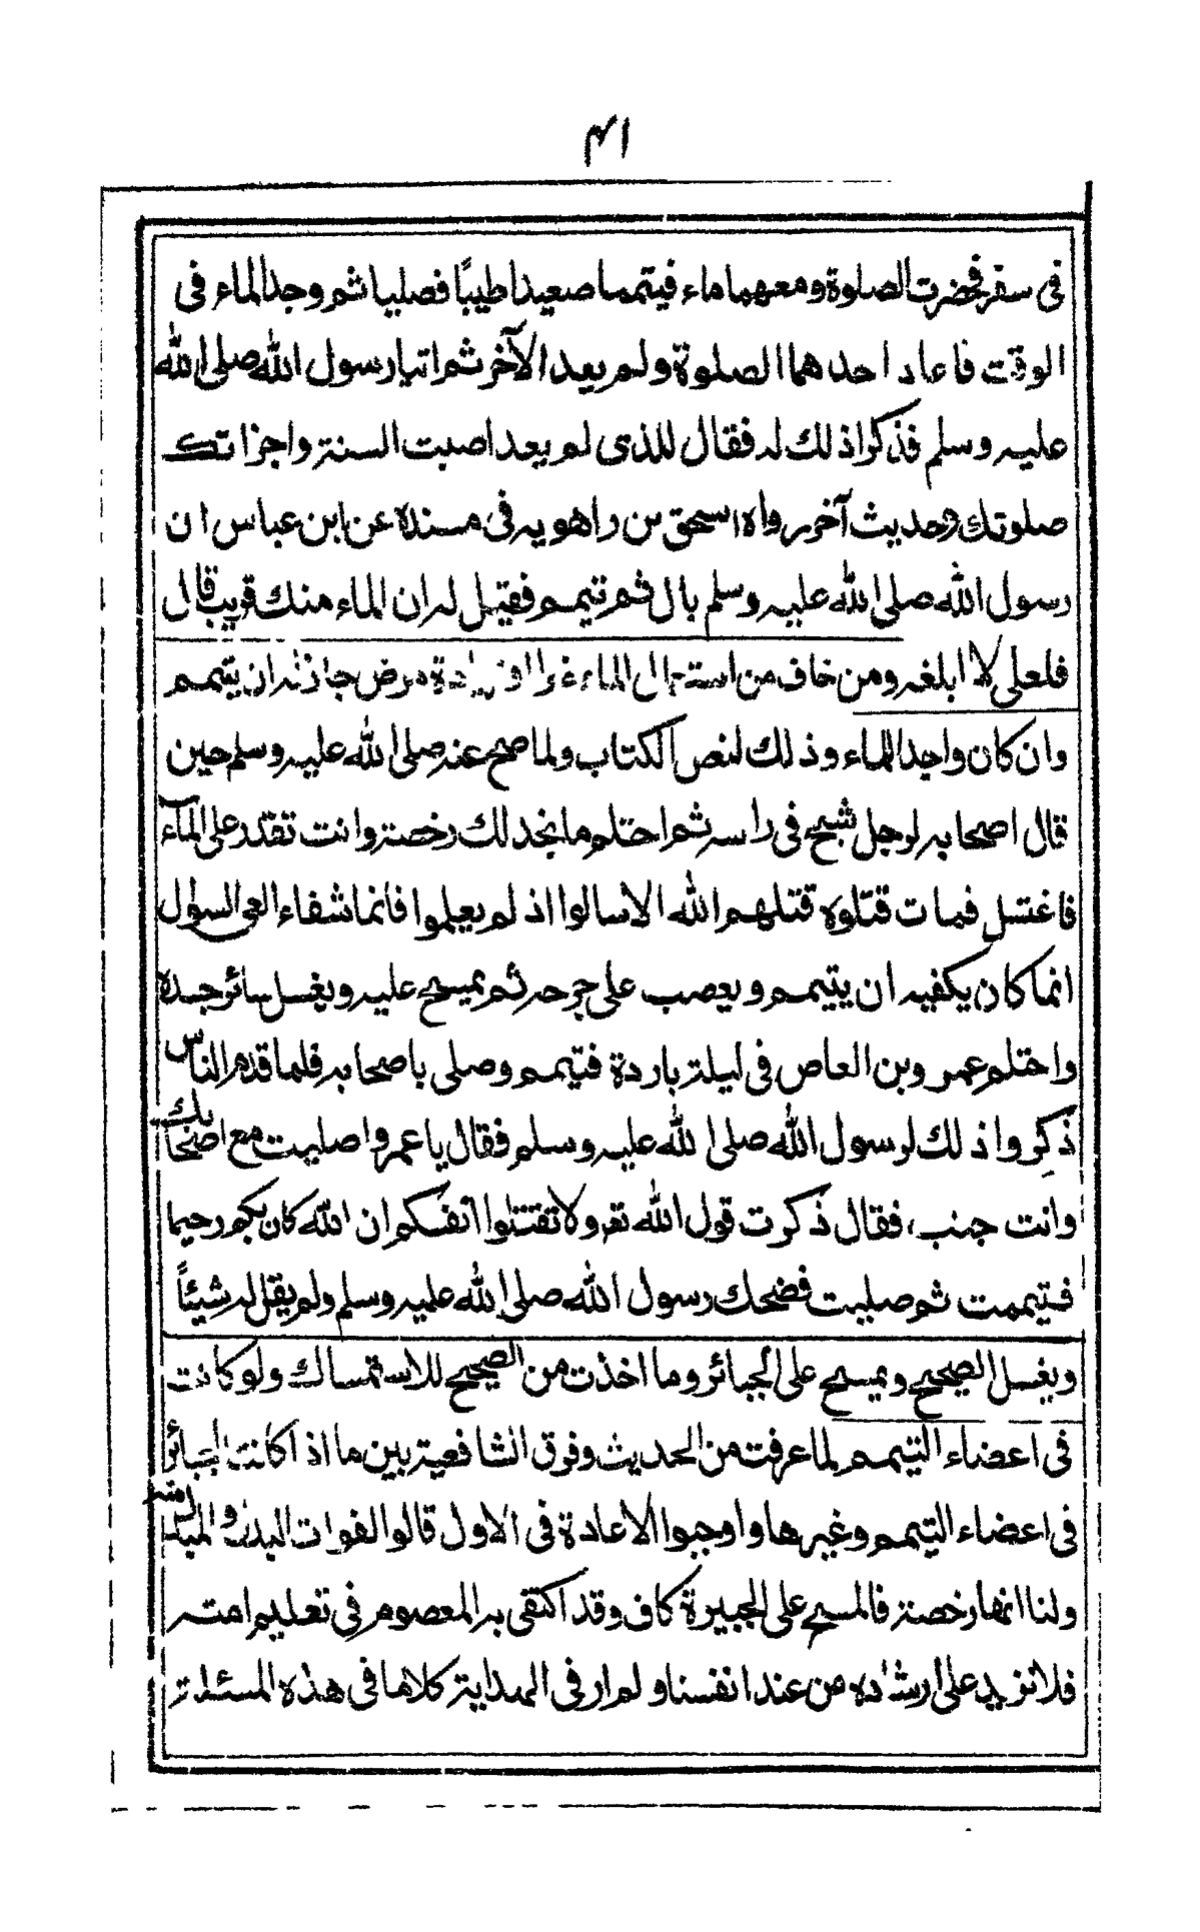 ٤١
في سفر فحضرت الصلوة ومعهما ماء فيتمما صعيدا طيبًا فصليا ثم وجد الماء في
الوقت فاعاد احدهما الصلوة ولم يعد الآخر ثم اتيا رسول الله صلى الله
عليه وسلم فذكرا ذلك له فقال للذى لم يعد اصبت السنة واجزاتك
صلوتك وحديث آخر رواه اسحق بن راهويه في مسنده عن ابن عباس ان
رسول الله صلى الله عليه وسلم بال ثم تيمم فقيل له ان الماء منك قريب قال
فلعلى لا ابلغه ومن خاف من استعمال الماء ضررا او زيادة مرض جاز له ان يتيمم
وان كان واجد الماء وذلك لنص الكتاب ولما صح عنه صلى الله عليه وسلم حين
قال اصحابه لرجل شج في راسه ثم احتلم ما نجد لك رخصة وانت تقدر على المآء
فاغتسل فمات قتلوه قتلهم الله الا سالوا اذ لم يعلموا فانما شفاء العى السؤل
انما كان يكفيه ان يتيمم ويعصب على جرحه ثم يمسح عليه ويغسل سائر جسده
واحتلم عمرو بن العاص في ليلة باردة فتيمم وصلى باصحابه فلما قدم الناس
ذكروا ذلك لرسول الله صلى الله عليه وسلم فقال يا عمرو اصليت مع اصحابك
وانت جنب، فقال ذكرت قول الله تع ولا تقتلوا انفسكم ان الله كان بكم رحيما
فتيممت ثم صليت فضحك رسول الله صلى الله عليه وسلم ولم يقل له شيئاً
ويغسل الصحيح ويمسح على الجبائر وما اخذت من الصحيح للاستمساك ولو كانت
في اعضاء التيمم لما عرفت من الحديث وفرق الشافعية بين ما اذا كانت الجبائر
في اعضاء التيمم وغيرها واوجبوا الاعادة في الاول قالوا لفوات البدل والمبدل منه
ولنا انها رخصة فالمسح على الجبيرة كاف وقد اكتفى به المعصوم في تعليم امته
فلا نزيد على ارشاده من عند انفسنا ولم ار في الهداية كلاما في هذه المسئلة